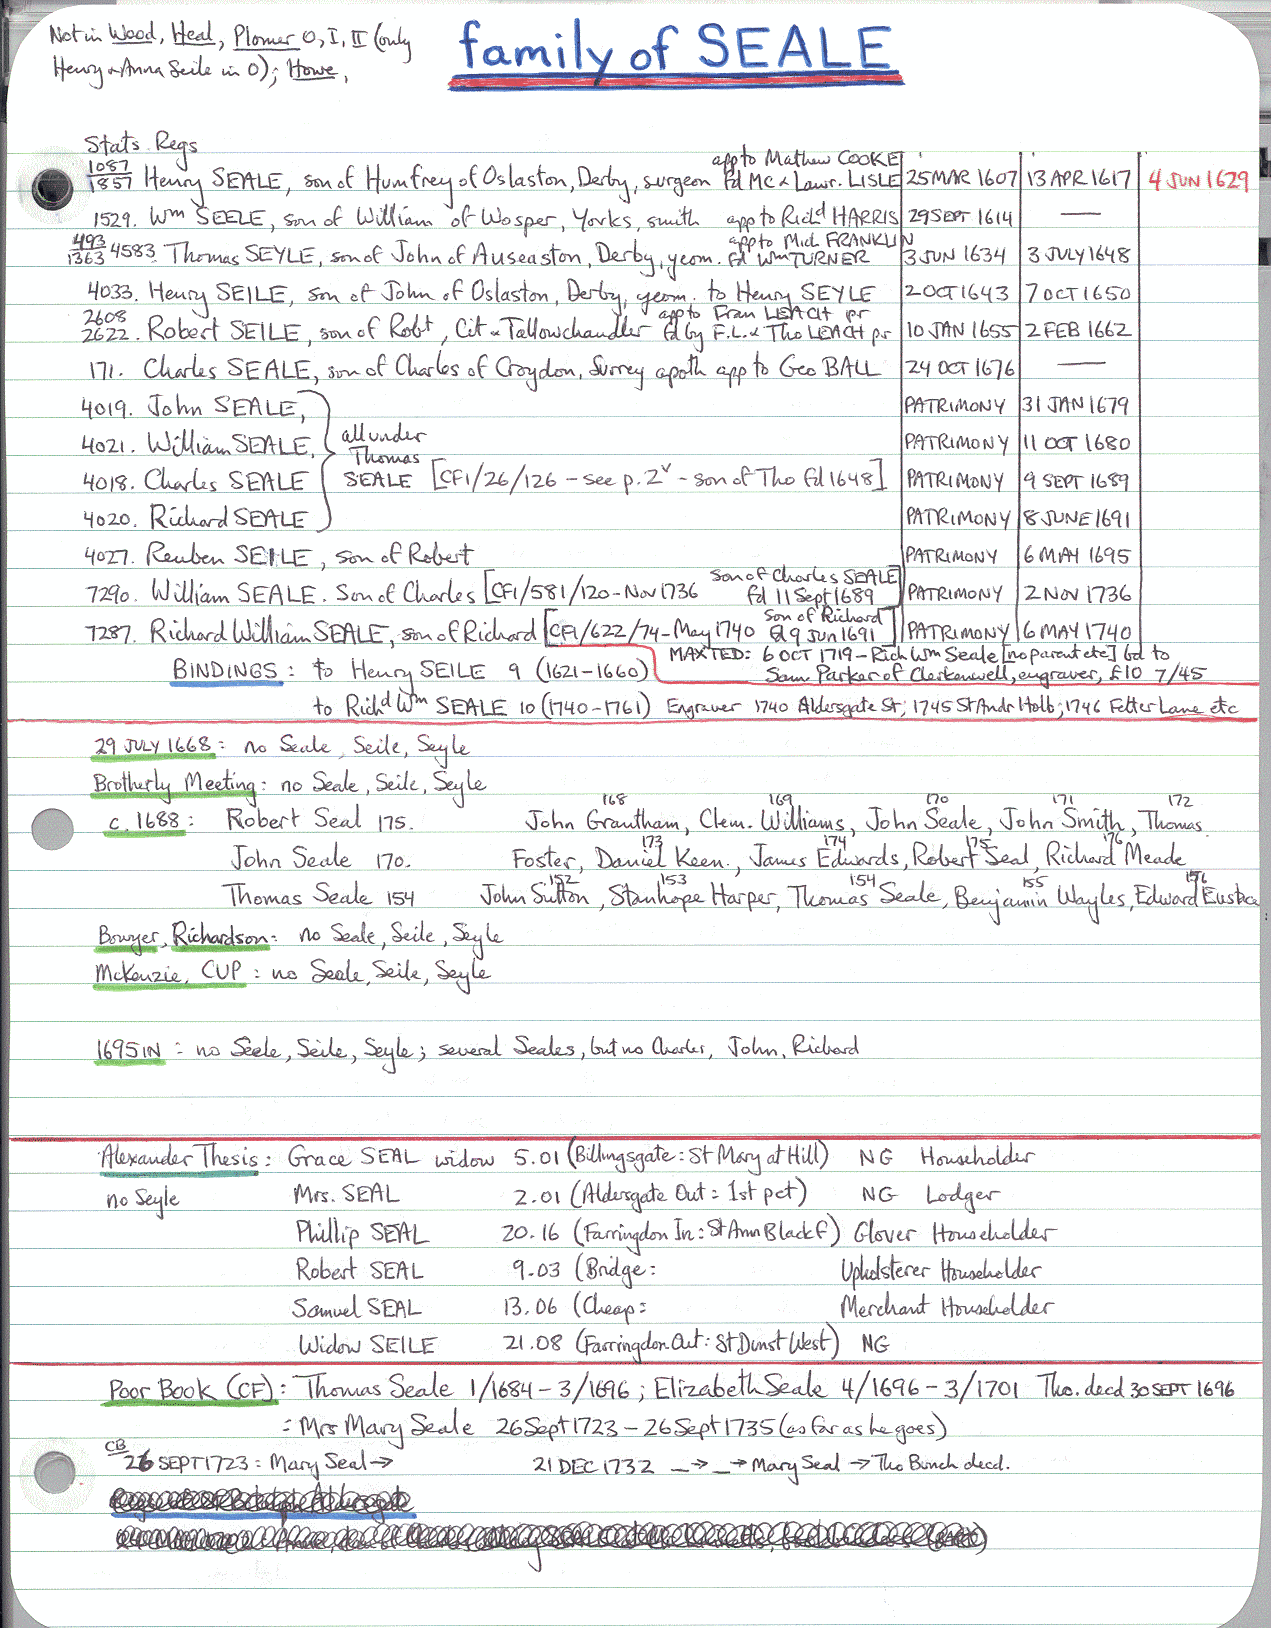 Not in Wood, Heal, Plomer O, I, II (only
Henry & Anna Seile in O); Howe,
family of SEALE
Stats. Regs
app to Mathew COOKE
1087
1857 Henry SEALE, son of Humfrey of Oslaston, Derby, surgeon fd MC & Lawr. LISLE 25 MAR 1607 13 APR 1617 4 JUN 1629
1529. Wm SEELE, son of William of Wosper, Yorks, smith app to Richd HARRIS 29 SEPT 1614 —
app to Mich FRANKLIN
493
1363 4583. Thomas SEYLE, son of John of Auseaston, Derby, yeom. fd Wm TURNER 3 JUN 1634 3 JULY 1648
4033. Henry SEILE, son of John of Oslaston, Derby, yeom. to Henry SEYLE 2 OCT 1643 7 OCT 1650
2608 app to Fran LEACH pr
2622. Robert SEILE, son of Robt, Cit & Tallowchandler fd by F.L. & Tho LEACH pr 10 JAN 1655 2 FEB 1662
171. Charles SEALE, son of Charles of Croydon, Surrey apoth app to Geo BALL 24 OCT 1676 —
4019. John SEALE, PATRIMONY 31 JAN 1679
4021. William SEALE, all under PATRIMONY 11 OCT 1680
Thomas
4018. Charles SEALE SEALE [CF1/26/126 - see p. 2v - son of Tho fd 1648] PATRIMONY 9 SEPT 1689
4020. Richard SEALE PATRIMONY 8 JUNE 1691
4027. Reuben SEILE, son of Robert PATRIMONY 6 MAY 1695
son of Charles SEALE
7290. William SEALE. Son of Charles [CF1/581/120 - Nov 1736 fd 11 Sept 1689] PATRIMONY 2 NOV 1736
son of Richard
7287. Richard William SEALE, son of Richard [CF1/622/74 - May 1740 fd 9 Jun 1691] PATRIMONY 6 MAY 1740
MAXTED: 6 OCT 1719 - Rich Wm Seale [no parent etc] bd to
BINDINGS: to Henry SEILE 9 (1621-1660) Sam Parker of Clerkenwell, engraver, £10 7/45
to Richd Wm SEALE 10 (1740-1761) Engraver 1740 Aldersgate St; 1745 St Andr Holb; 1746 Fetter Lane etc
29 JULY 1668: no Seale, Seile, Seyle
Brotherly Meeting: no Seale, Seile, Seyle
168 169 170 171 172
c. 1688: Robert Seal 175. John Grantham, Clem. Williams, John Seale, John Smith, Thomas
173 174 175 176
John Seale 170. Foster, Daniel Keen, James Edwards, Robert Seal, Richard Meade
152 153 154 155 156
Thomas Seale 154 John Sutton, Stanhope Harper, Thomas Seale, Benjamin Wayles, Edward Eustace
Bowyer, Richardson: no Seale, Seile, Seyle
McKenzie, CUP: no Seale, Seile, Seyle
1695 IN: no Seele, Seile, Seyle; several Seales, but no Charles, John, Richard
Alexander Thesis: Grace SEAL widow 5.01 (Billingsgate: St Mary at Hill) NG Householder
no Seyle Mrs. SEAL 2.01 (Aldersgate Out: 1st pct) NG Lodger
Phillip SEAL 20.16 (Farringdon In: St Ann Blackf) Glover Householder
Robert SEAL 9.03 (Bridge: Upholsterer Householder
Samuel SEAL 13.06 (Cheap: Merchant Householder
Widow SEILE 21.08 (Farringdon Out: St Dunst West) NG
Poor Book (CF): Thomas Seale 1/1684 - 3/1696; Elizabeth Seale 4/1696 - 3/1701 Tho. decd 30 SEPT 1696
= Mrs Mary Seale 26 Sept 1723 - 26 Sept 1735 (as far as he goes)
CB
26 SEPT 1723: Mary Seal → 21 DEC 1732 — → — → Mary Seal → Tho Bunch decd.